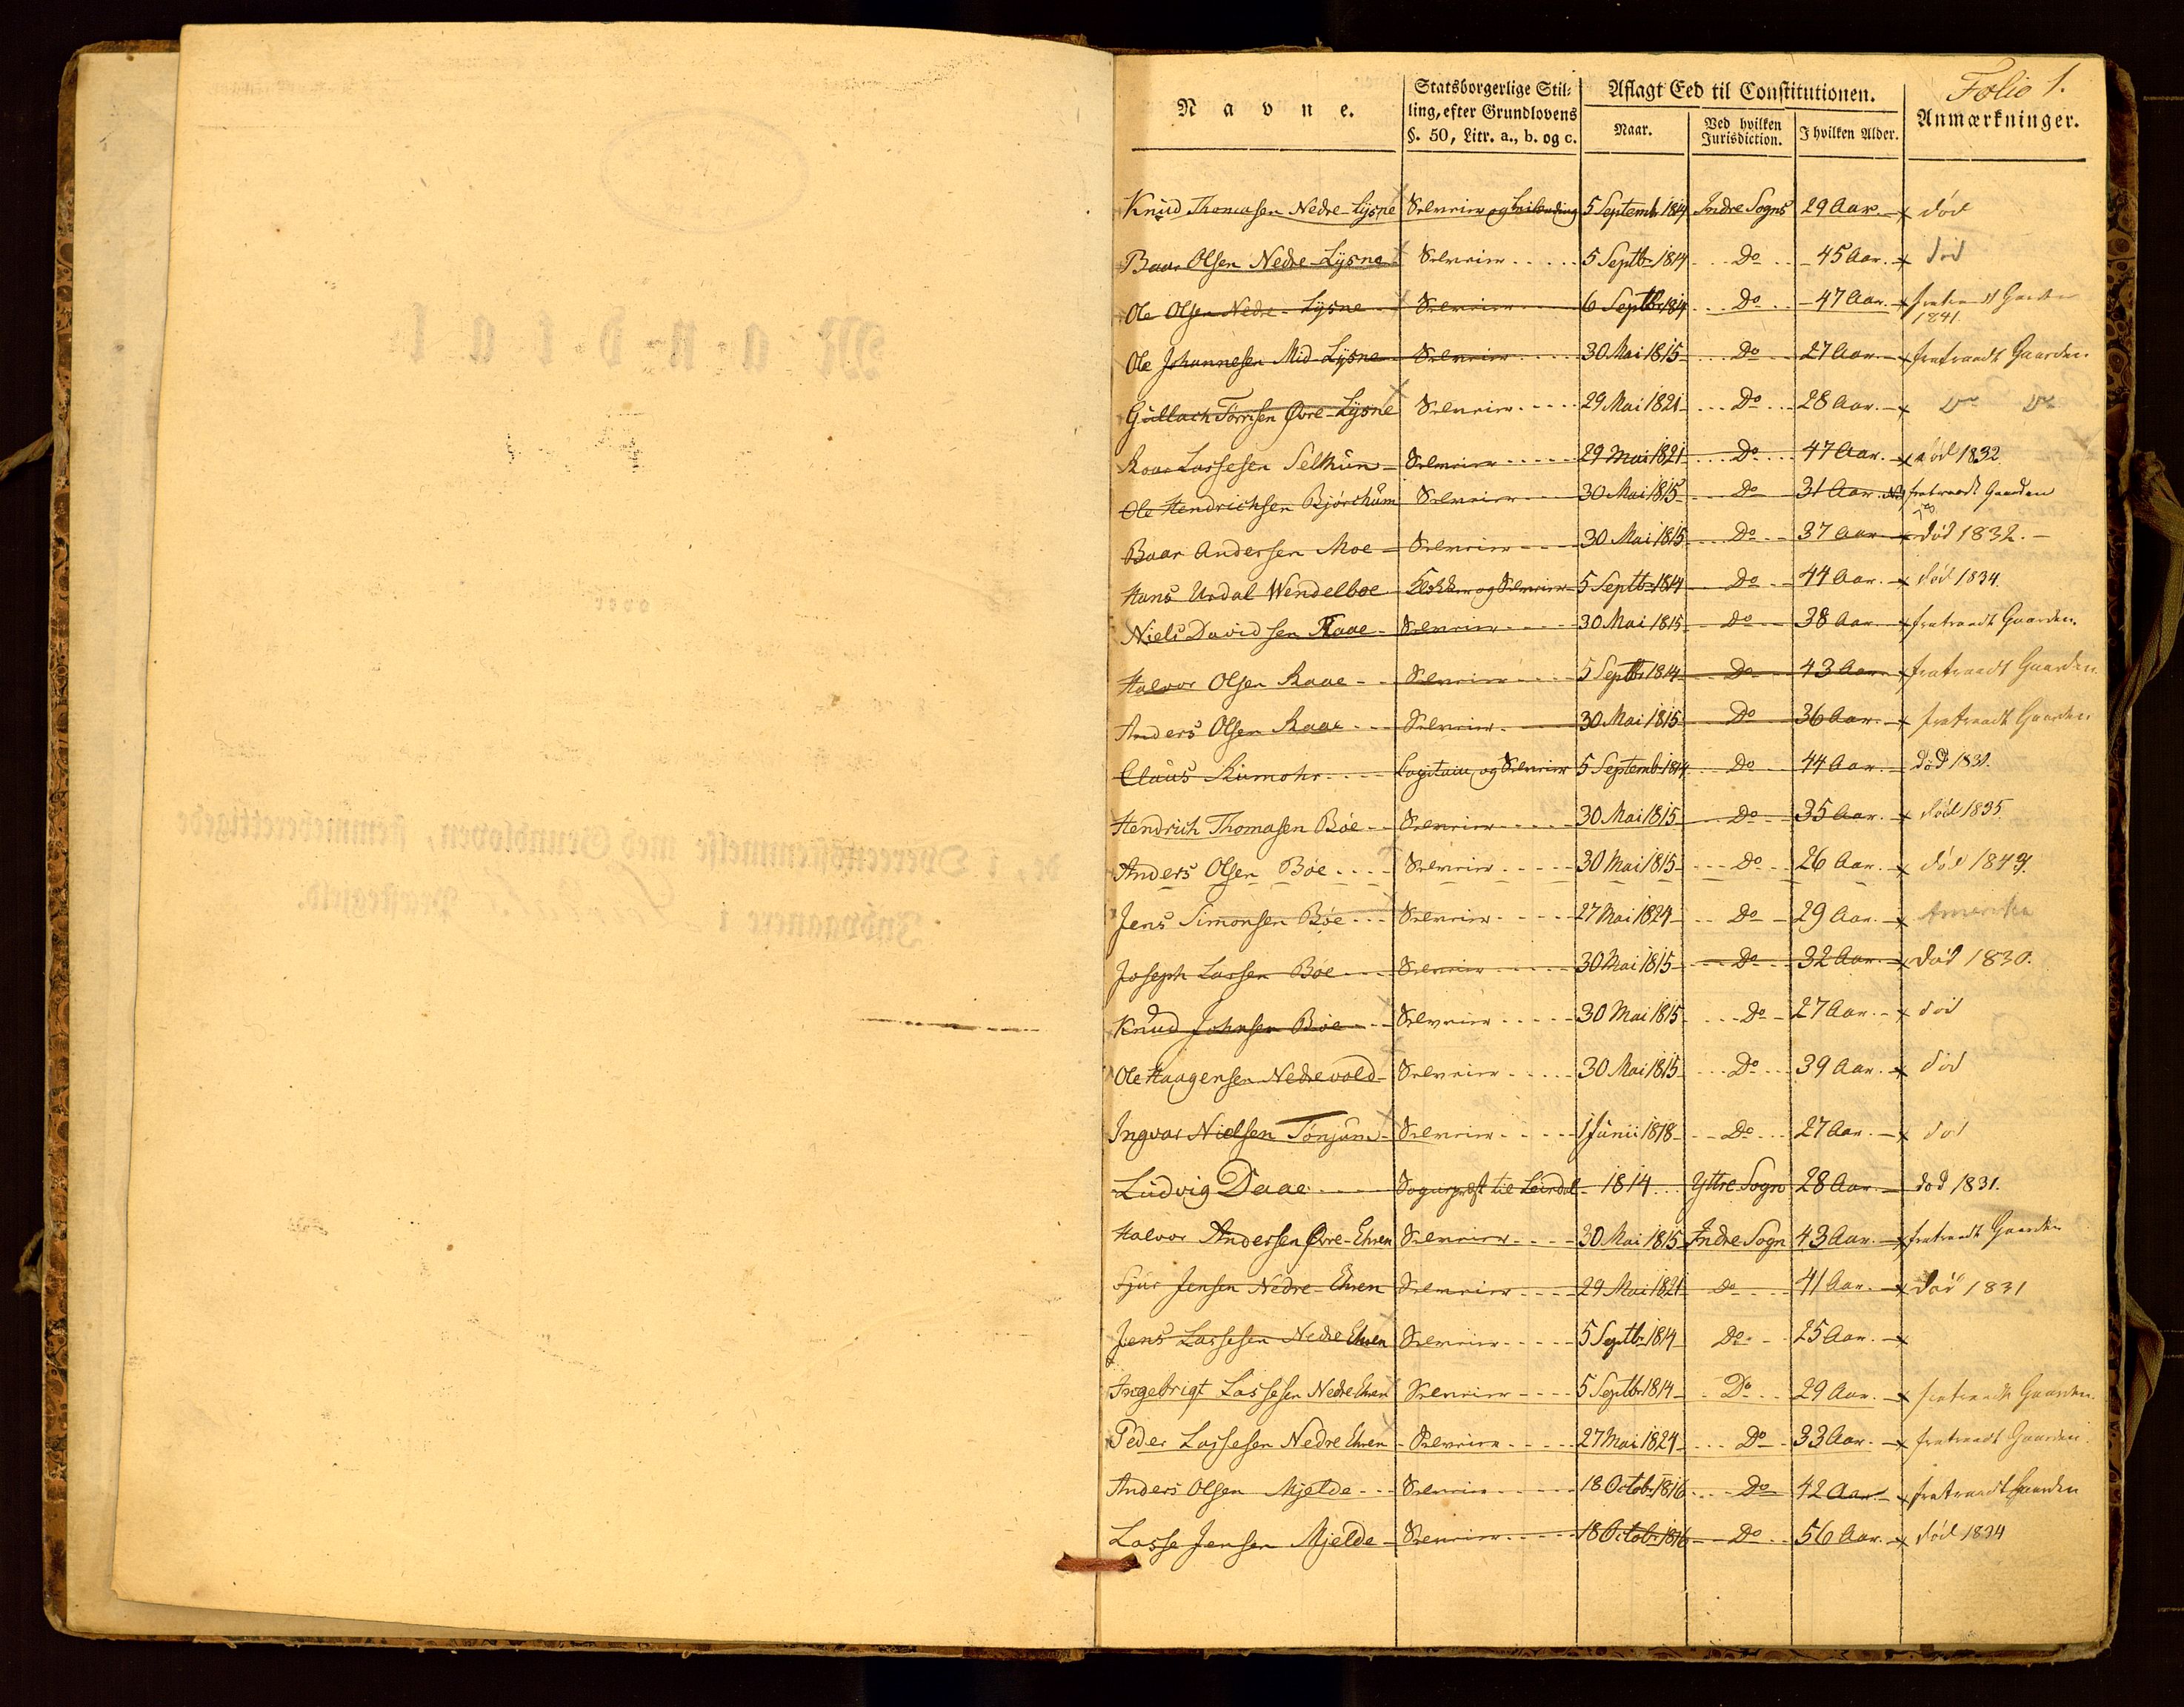 Folio 1.
Navne.
Statsborgerlige Stil-
ling, efter Grundlovens
§. 50, Litr. a., b. og c.
Aflagt Eed til Constitutionen.
Naar.
Ved hvilken
Jurisdiction.
I hvilken Alder.
Anmærkninger.
Knud Thomasen Nedre-Lysne Selveier og 5 Septemb 1814 Indre Sogns 29 Aar. død
Baar Olsen Nedre-Lysne Selveier 5 Septbr 1814 Do 45 Aar. død
Ole Olsen Nedre-Lysne Selveier 6 Septbr 1814 Do 47 Aar. fratraadt Gaarden
1841
Ole Johannesen Mid-Lysne Selveier 30 Mai 1815 Do 27 Aar. fratraadt Gaarden
Gullach Torrisen Øvre-Lysne Selveier 29 Mai 1821 Do 28 Aar. Do Do
Roar Lassesen Selthun Selveier 29 Mai 1821 Do 47 Aar. død 1832
Ole Hendrichsen Bjørchum Selveier 30 Mai 1815 Do 31 Aar. fratraadt Gaarden
Baar Andersen Moe Selveier 30 Mai 1815 Do 37 Aar død 1832.
Hans Urdal Wendelboe Klokker og Selveier 5 Septbr 1814 Do 44 Aar. død 1834.
Niels Davidsen Raae Selveier 30 Mai 1815 Do 38 Aar fratraadt Gaarden.
Halvor Olsen Raae Selveier 5 Septbr 1814 Do 43 Aar fratraadt Gaarden.
Anders Olsen Raae Selveier 30 Mai 1815 Do 36 Aar. fratraadt Gaarden
Claus Rumohr og Selveier 5 Septemb 1814 Do 44 Aar. død 1831.
Hendrich Thomasen Bøe Selveier 30 Mai 1815 Do 35 Aar. død 1835
Anders Olsen Bøe Selveier 30 Mai 1815 Do 26 Aar. død 1849.
Jens Simonsen Bøe Selveier 27 Mai 1824 Do 29 Aar. Amerika
Joseph Larsen Bøe Selveier 30 Mai 1815 Do 32 Aar. død 1830.
Knud Johnsen Bøe Selveier 30 Mai 1815 Do 27 Aar. død
Ole Haagensen Nedrevold Selveier 30 Mai 1815 Do 39 Aar. død
Ingvar Nielsen Tønjum Selveier 1 Junii 1818 Do 27 Aar. død
Ludvig Daae Sogneprest til Leirdal 1814 Yttre Sogn 28 Aar. død 1831.
Halvor Andersen Øvre-Ehren Selveier 30 Mai 1815 Indre Sogn 43 Aar. fratraadt Gaarden
Sjur Jensen Nedre-Ehren Selveier 29 Mai 1821 Do 41 Aar. død 1831
Jens Lassesen Nedre Ehren Selveier 5 Septbr 1814 Do 25 Aar.
Ingebrigt Lassesen Nedre Ehren Selveier 5 Septbr 1814 Do 29 Aar. fratraadt Gaarden.
Peder Lassesen Nedre Ehren Selveier 27 Mai 1824 Do 33 Aar. fratraadt Gaarden.
Anders Olsen Mjelde Selveier 18 Octob 1816 Do 42 Aar. fratraadt Gaarden
Lasse Jensen Mjelde Selveier 18 Octob 1816 Do 56 Aar. død 1834